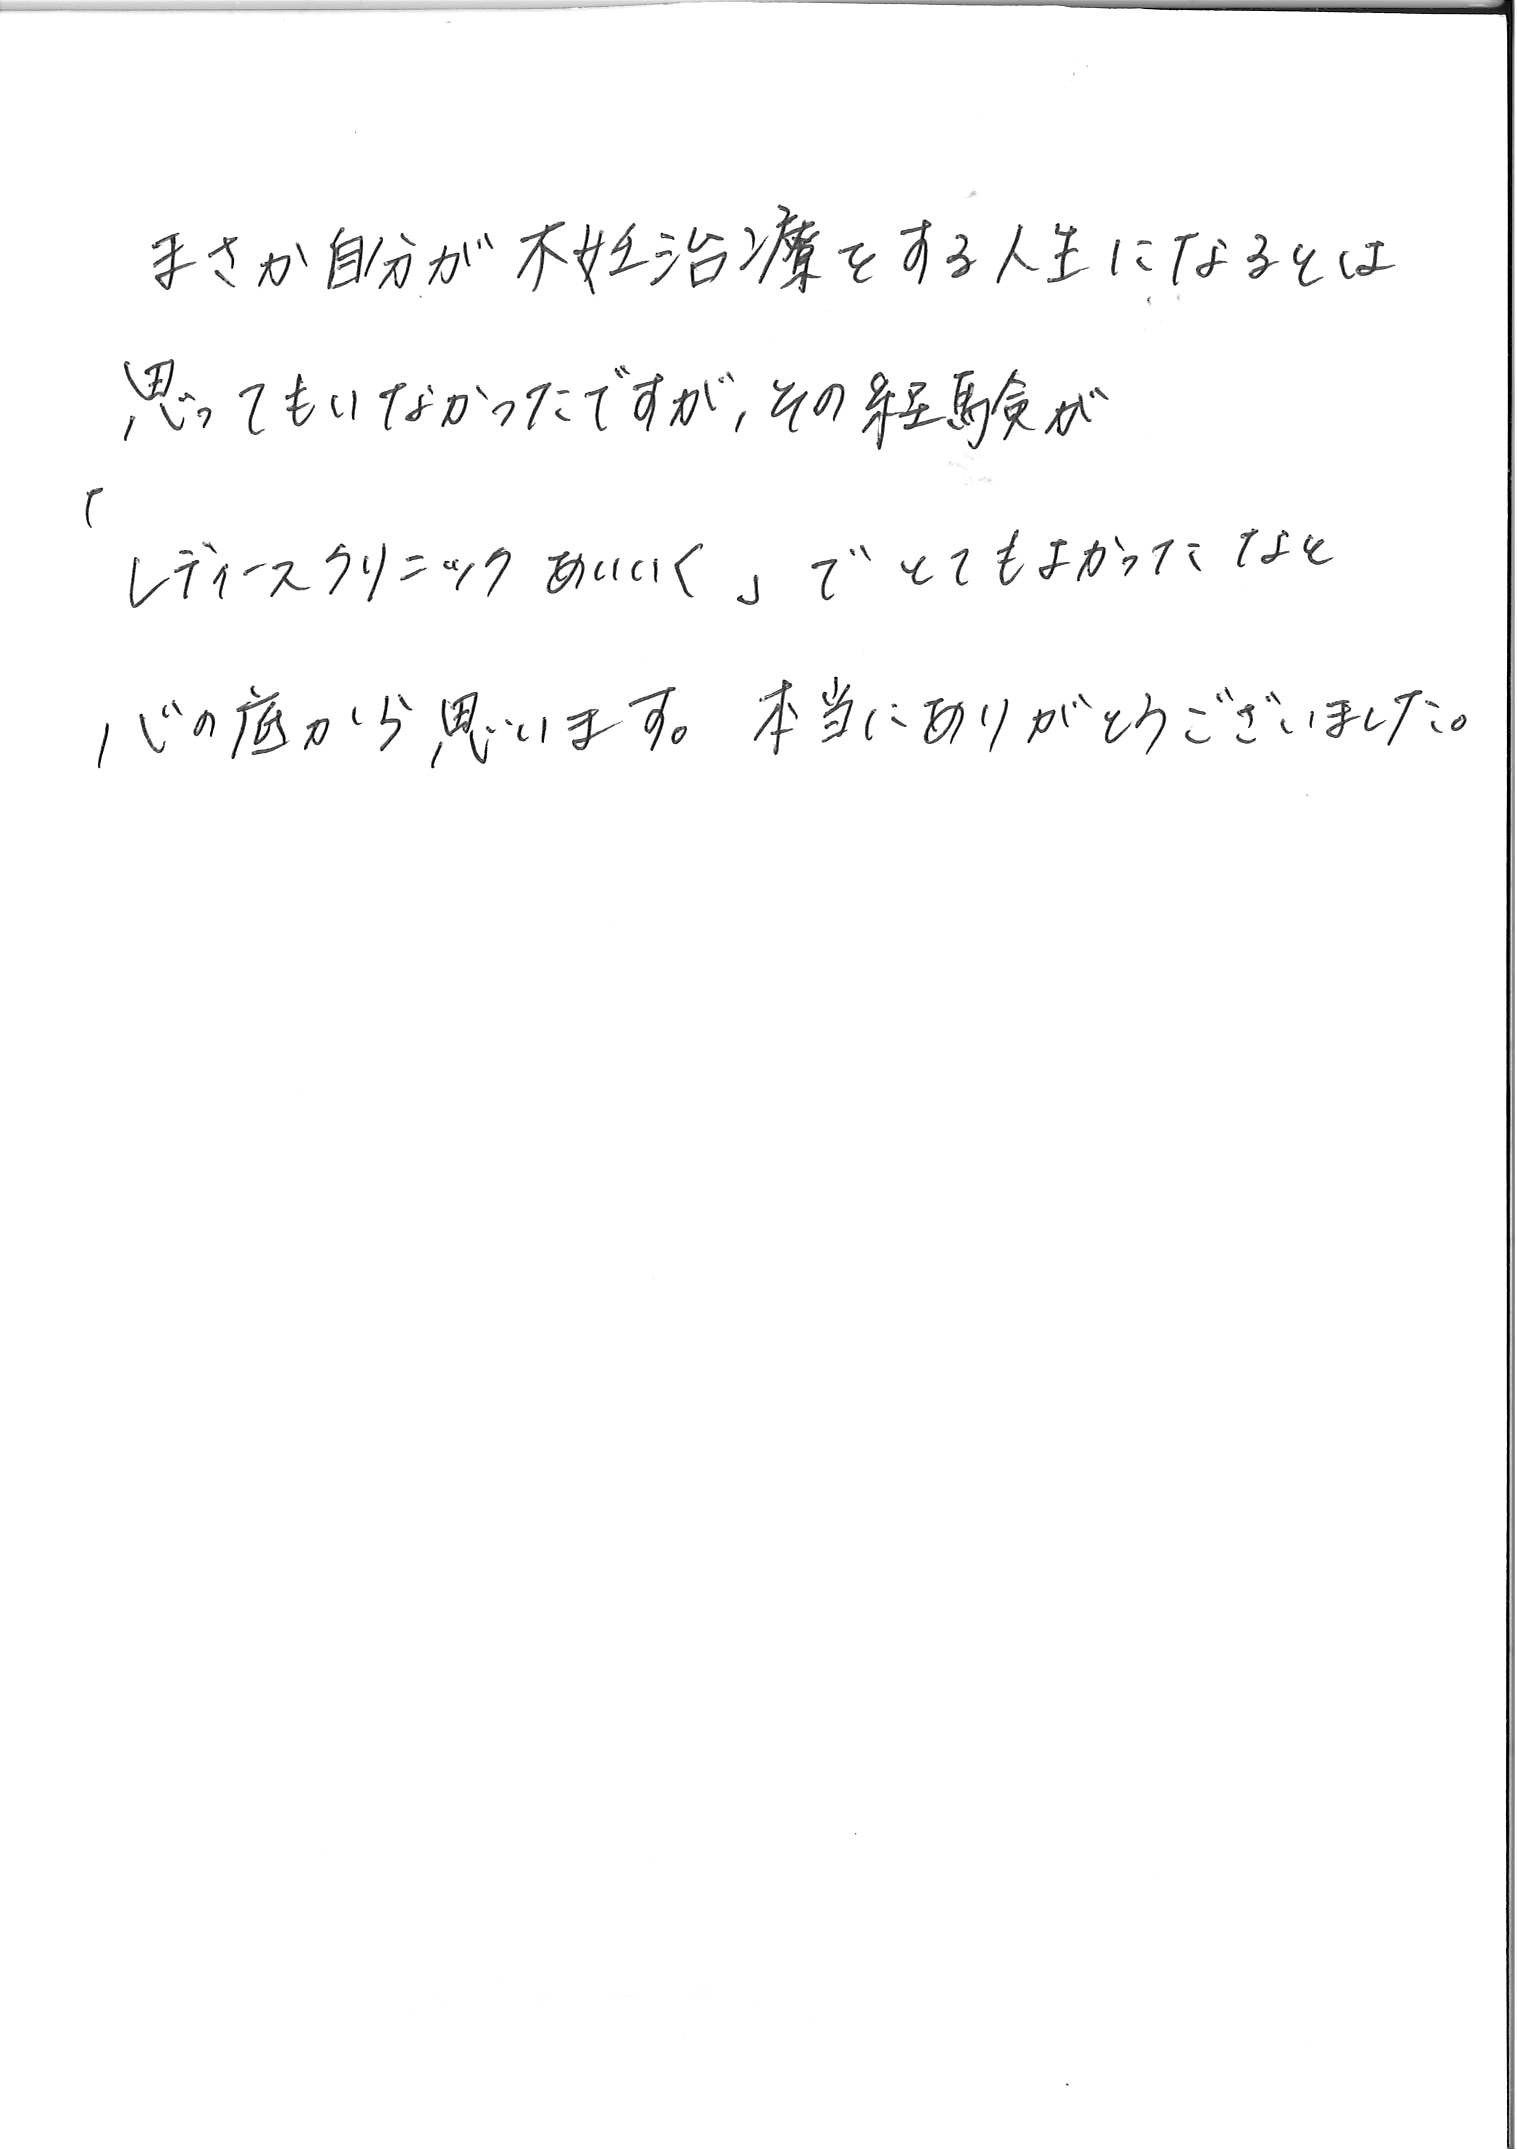 まさか自分が不妊治療をする人生になるとは
思ってもいなかったですが、その経験が
「レディースクリニックあいいく」でとてもよかったなと
心の底から思います。本当にありがとうございました。